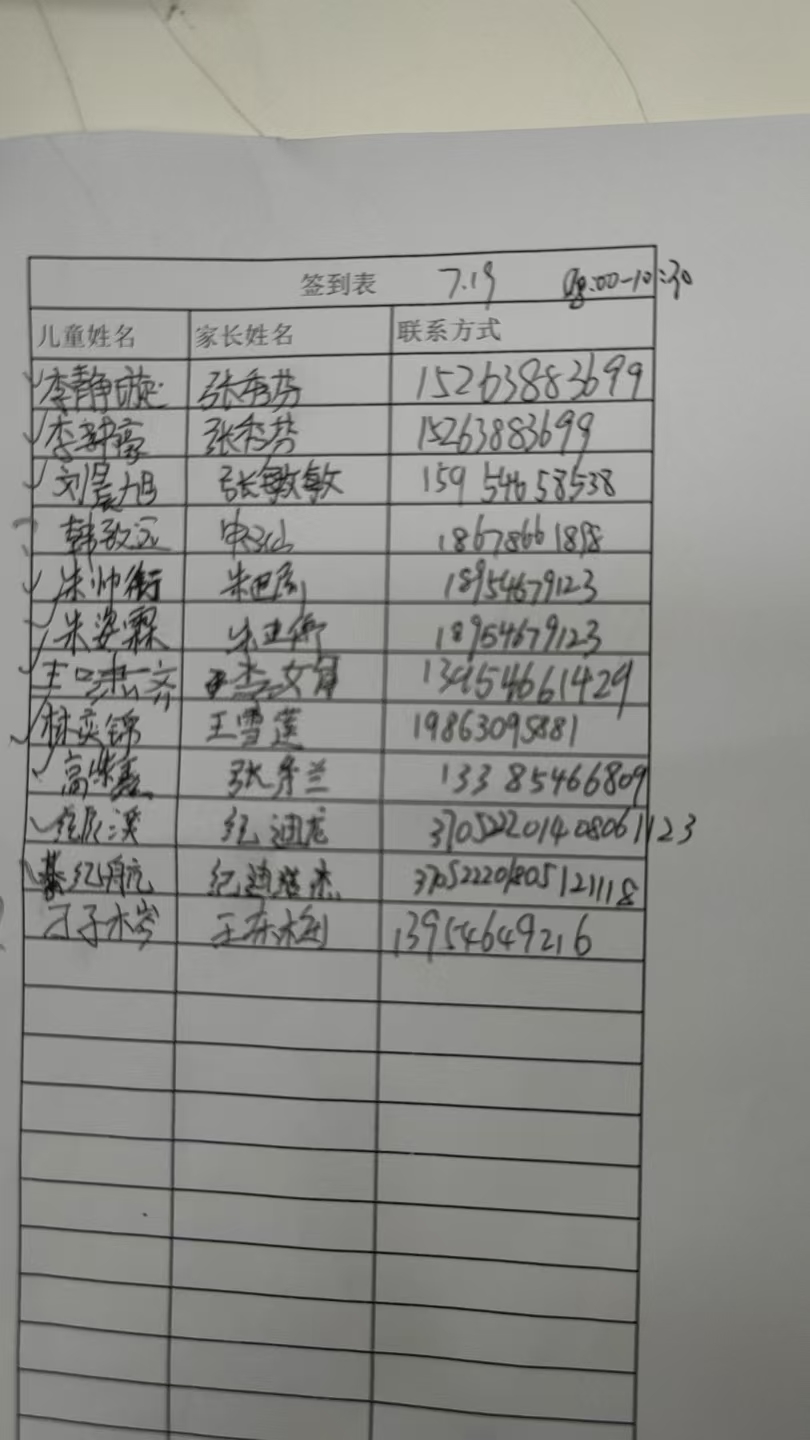 签到表 7.19 08:00-10:30
儿童姓名 家长姓名 联系方式
李静璇 张秀芬 15263883699
李 豪 张秀芬 15263883699
刘晨旭 张敏敏 15954658538
韩 远 18678661898
朱帅衡 朱 18954679123
朱姿霖 朱 18954679123
王 李文 13954661429
林奕锦 王雪莲 19863095881
高 张 兰 13385466809
溪 纪 龙 370522201408061123
纪航 纪 杰 370522201805121118
子 王 13954649216